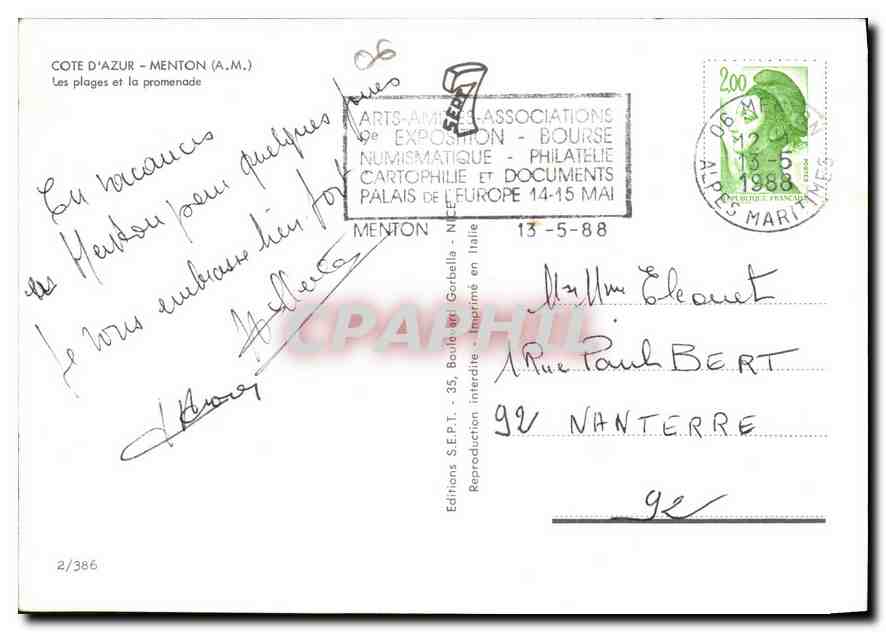 COTE D'AZUR - MENTON (A.M.)
Les plages et la promenade
06
En vacances
Menton pour quelques jours
Je vous embrasse bien fort
2/386
SEPT
ARTS-AMITIES-ASSOCIATIONS
9e EXPOSITION - BOURSE
NUMISMATIQUE - PHILATELIE
CARTOPHILIE ET DOCUMENTS
PALAIS DE L'EUROPE 14-15 MAI
MENTON 13-5-88
2,00
REPUBLIQUE FRANCAISE
06 MENTON
13-5
1988
ALPES MARITIMES
Editions S.E.P.T. - 35, Boulevard Gorbella - NICE
Reproduction interdite - Imprimé en Italie
CPAPHIL
Mr Mme
1 Rue Paul BERT
92 NANTERRE
92